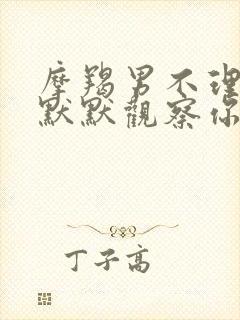 摩羯男不理
默默觀察你
丁子高